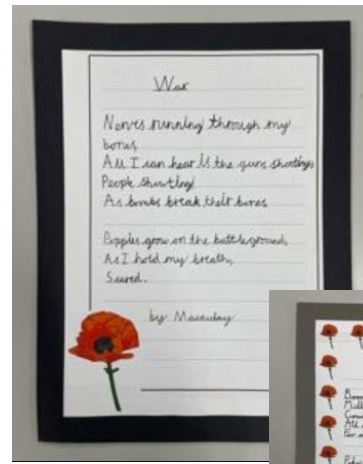 War
Nerves running through my
bones
All I can hear is the guns shooting
People shouting
As bombs break their bones
Poppies grow on the battleground,
As I hold my breath,
Scared.
by Macauley
All
For